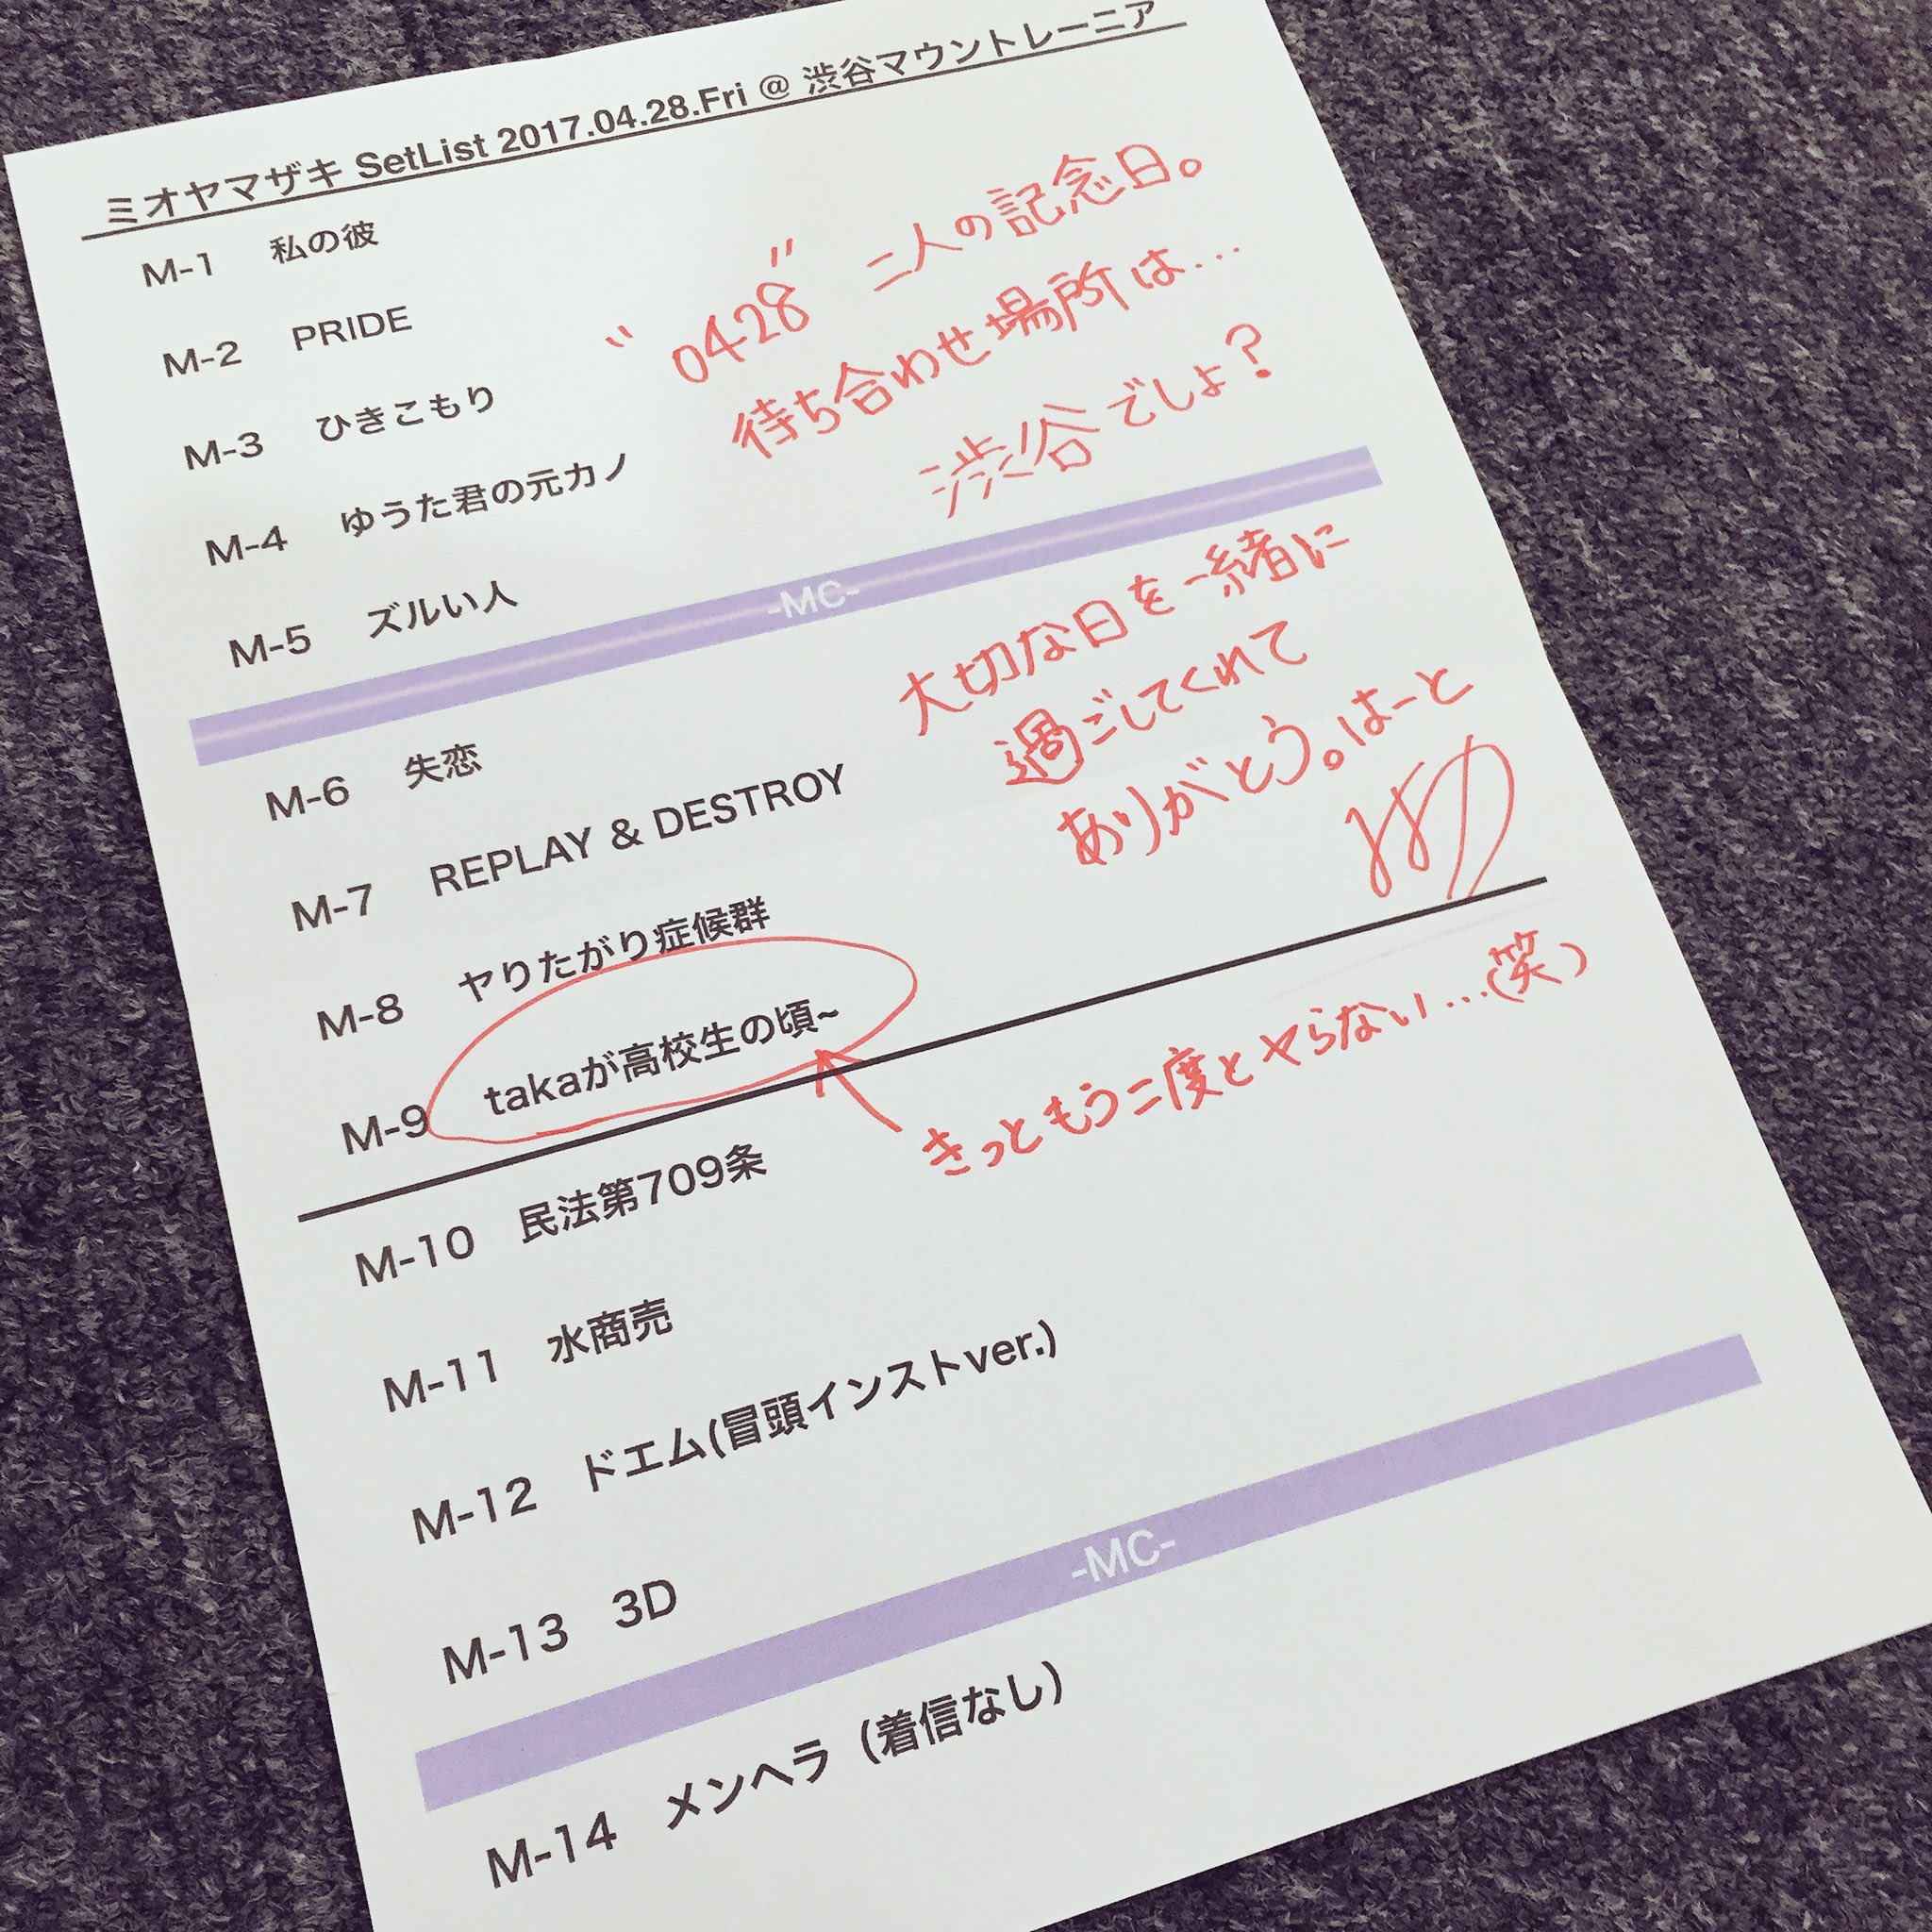 ミオヤマザキ SetList 2017.04.28.Fri @ 渋谷マウントレーニア
M-1 私の彼
M-2 PRIDE
M-3 ひきこもり
M-4 ゆうた君の元カノ
M-5 ズルい人
"0428" 二人の記念日。
待ち合わせ場所は...
渋谷でしょ?
-MC-
M-6 失恋
M-7 REPLAY & DESTROY
M-8 ヤりたがり症候群
M-9 takaが高校生の頃~
大切な日を一緒に
過ごしてくれて
ありがとう。はーと
きっともう二度とヤらない...(笑)
M-10 民法第709条
M-11 水商売
M-12 ドエム(冒頭インストver.)
M-13 3D
-MC-
M-14 メンヘラ（着信なし）